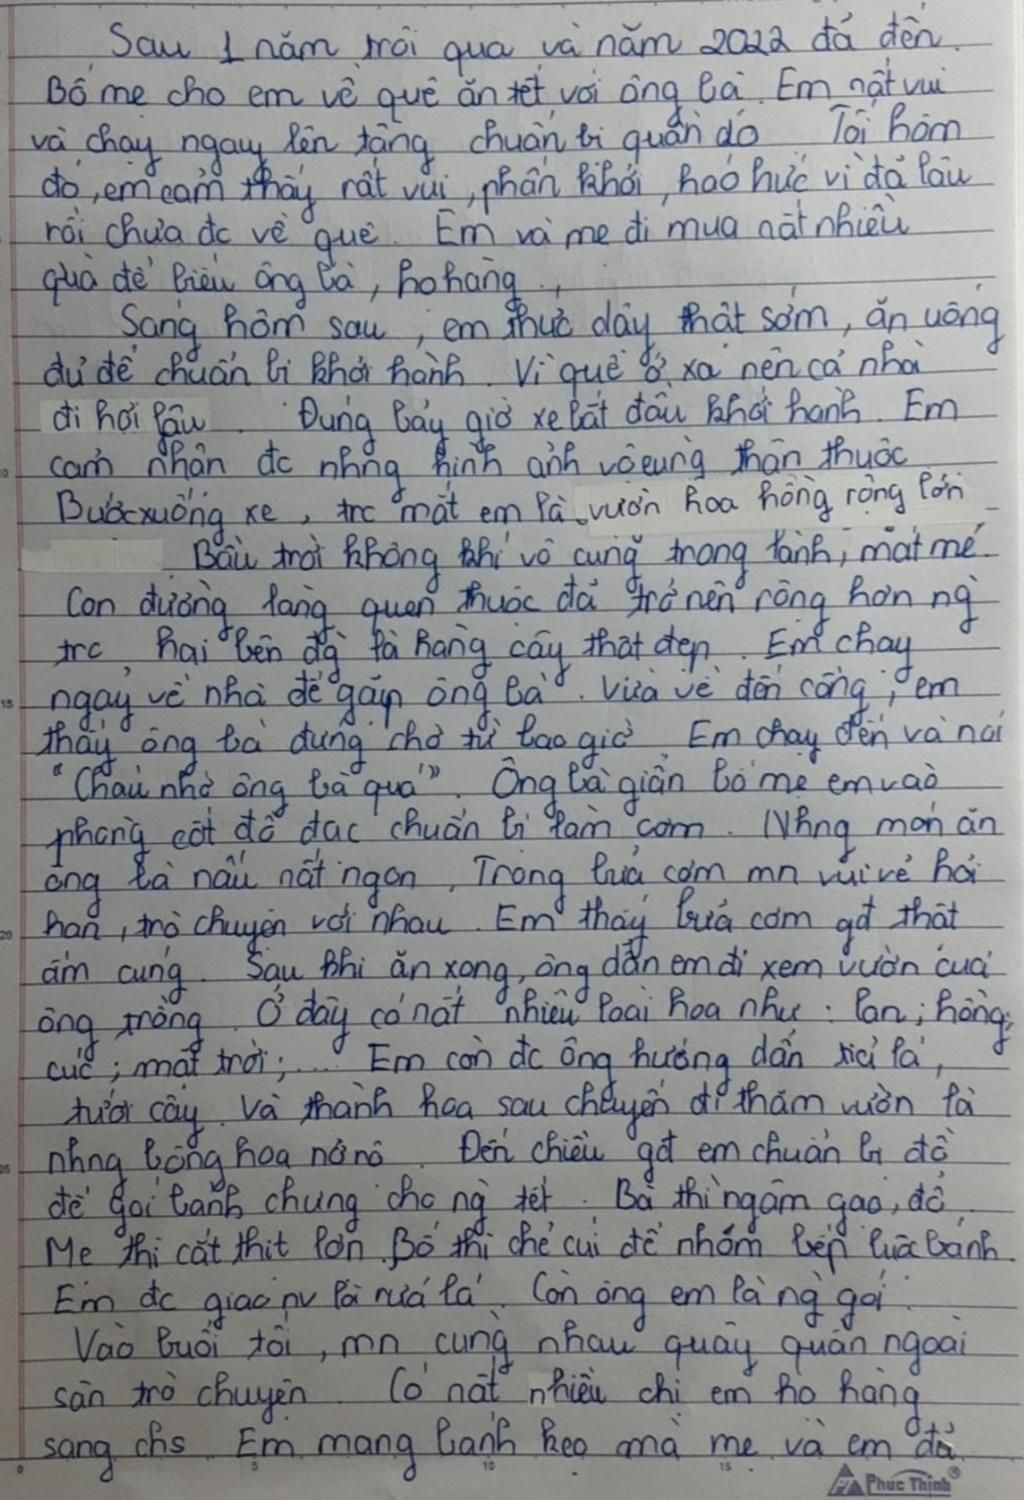 Sau 1 năm trôi qua và năm 2022 đã đến.
Bố mẹ cho em về quê ăn tết với ông bà. Em rất vui
và chạy ngay lên tầng chuẩn bị quần áo Tối hôm
đó, em cảm thấy rất vui, phấn khởi, háo hức vì đã lâu
rồi chưa đc về quê. Em và mẹ đi mua rất nhiều
quà để biếu ông bà, họ hàng.,
Sáng hôm sau, em thức dậy thật sớm, ăn uống
đủ để chuẩn bị khởi hành. Vì quê ở xa nên cả nhà
đi hơi lâu. Đúng bảy giờ xe bắt đầu khởi hành. Em
cảm nhận đc nhng hình ảnh vô cùng thân thuộc
Bước xuống xe, trc mắt em là vườn hoa hồng rộng lớn
Bầu trời không khí vô cùng trong lành, mát mẻ.
Con đường làng quen thuộc đã trở nên rộng hơn ng
trc, hai bên đg là hàng cây thật đẹp. Em chạy
ngay về nhà để gặp ông bà. Vừa về đến cổng, em
thấy ông bà đứng chờ từ bao giờ. Em chạy đến và nói
"Cháu nhớ ông bà quá". Ông bà giần bố mẹ em vào
phòng cất đồ đạc chuẩn bị làm cơm. Nhng món ăn
ông bà nấu rất ngon, Trong bữa cơm mn vui vẻ hỏi
han, trò chuyện với nhau. Em thấy bữa cơm gđ thật
ấm cúng. Sau khi ăn xong, ông dẫn em đi xem vườn của
ông trồng. Ở đây có rất nhiều loài hoa như: lan; hồng;
cúc; mặt trời;.... Em còn đc ông hướng dẫn tỉa lá,
tưới cây. Và thành hoa sau chuyến đi thăm vườn là
nhng bông hoa nở rộ. Đến chiều gđ em chuẩn bị đồ
để gói bánh chưng cho ng tết. Bà thì ngâm gạo, đỗ.
Mẹ thì cắt thịt lợn. Bố thì chẻ củi để nhóm bếp luộc bánh.
Em đc giao nv là rửa lá. Còn ông em là ng gói.
Vào buổi tối, mn cùng nhau quây quần ngoài
sân trò chuyện. Có rất nhiều chị em họ hàng
sang chs. Em mang bánh kẹo mà mẹ và em đã
Phuc Thinh®